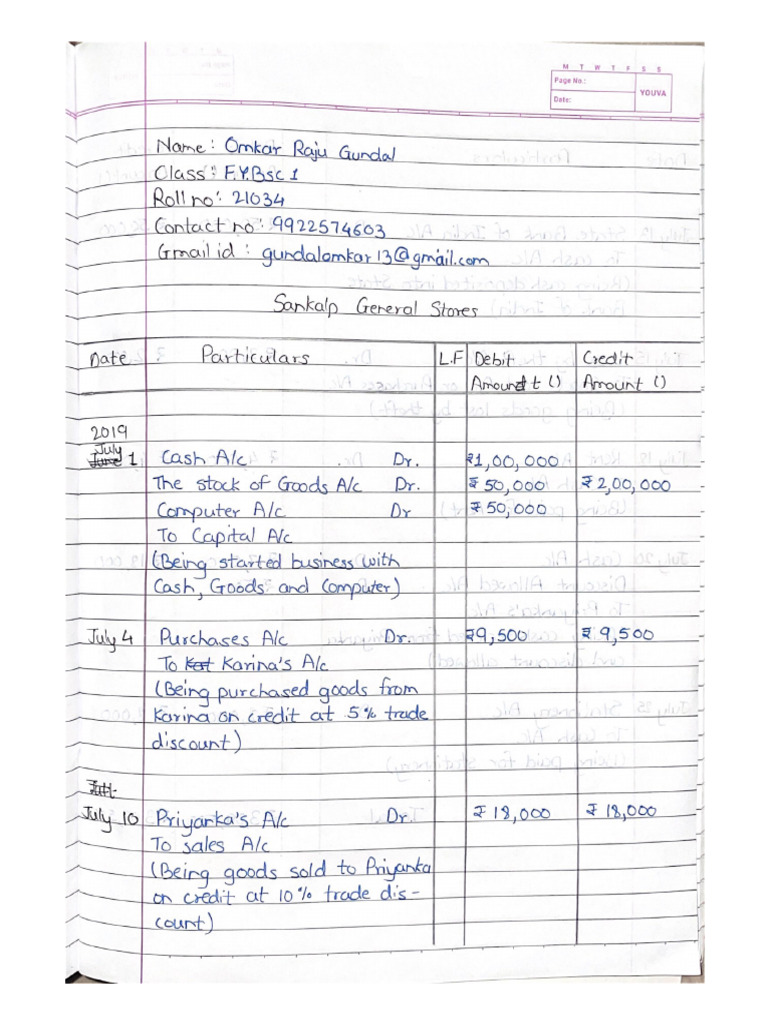 M T W T F S S
Page No.:
YOUVA
Date:
Name: Omkar Raju Gundal
Class: F.Y.Bsc 1
Roll no: 21034
Contact no: 9922574603
Gmail id: gundalomkar13@gmail.com
Sankalp General Stores
Date Particulars L.F Debit Credit
Amount () Amount ()
2019
July
June 1 Cash A/c Dr. ₹1,00,000
The stock of Goods A/c Dr. ₹50,000 ₹2,00,000
Computer A/c Dr ₹50,000
To Capital A/c
(Being started business with
Cash, Goods and Computer)
July 4 Purchases A/c Dr. ₹9,500 ₹9,500
To Karina's A/c
(Being purchased goods from
Karina on credit at 5% trade
discount)
July 10 Priyanka's A/c Dr. ₹18,000 ₹18,000
To sales A/c
(Being goods sold to Priyanka
on credit at 10% trade dis-
count)